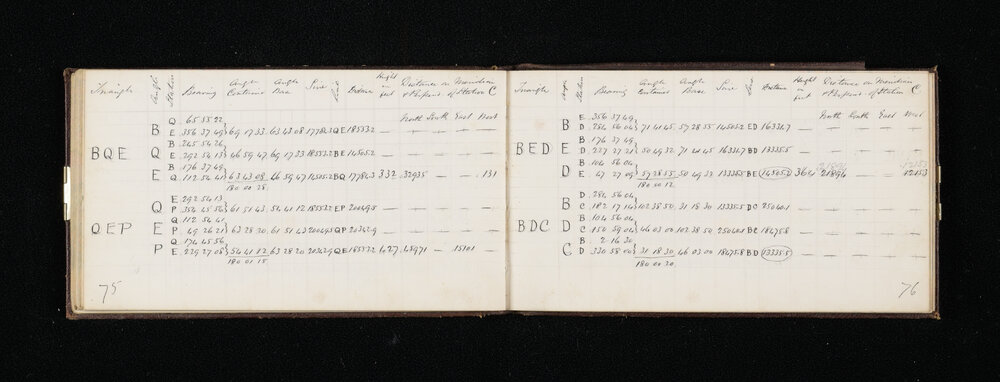 Triangle Angle Station Bearing Angle Contained Angle Base Sine Line Distance Height in feet Distance on Meridian & Perpend. of Station C
North South East West
Q 65 55 22
B E. 356 37 49 69 17 33 63 43 08 17784.3 QE 18533.2 — — — — —
B. 245 54 26
BQE Q E. 292 54 13 46 59 47 69 17 33 18533.2 BE 14505.2 — — — — —
B 176 37 49
E Q. 112 54 41 63 43 08 46 59 47 14505.2 BQ 17784.3 332 32935 — — 131
180 00 28
E 292 54 13
Q P 354 45 56 61 51 43 54 41 12 18533.2 EP 20049.5 — — — — —
Q. 112 54 41
QEP E P. 49 26 21 63 28 20 61 51 43 20049.5 QP 20342.9 — — — — —
Q. 174 45 56
P E. 229 27 08 54 41 12 63 28 20 20342.9 QE 18533.2 427 45971 — 15101 —
180 01 15
75
Triangle Angle Station Bearing Angle Contained Angle Base Sine Line Distance Height in feet Distance on Meridian & Perpend. of Station C
North South East West
E. 356 37 49
B D. 284 56 04 71 41 45 57 28 55 14505.2 ED 16331.7 — — — — —
B 176 37 49
BED E D. 227 27 21 50 49 32 71 41 45 16331.7 BD 13335.5 — — — — —
B. 104 56 04
D E. 47 27 09 57 28 55 50 49 32 13335.5 BE 14505.2 364 21894 — — 12153
180 00 12
D. 284 56 04
B C 182 17 14 102 38 50 31 18 30 13335.5 DC 25040.1 — — — — —
B 104 56 04
BDC D C 150 59 04 46 03 00 102 38 50 25040.1 BC 18475.8 — — — — —
B. 2 16 30
C D. 330 58 00 31 18 30 46 03 00 18475.8 BD 13335.5 — — — — —
180 00 20
76